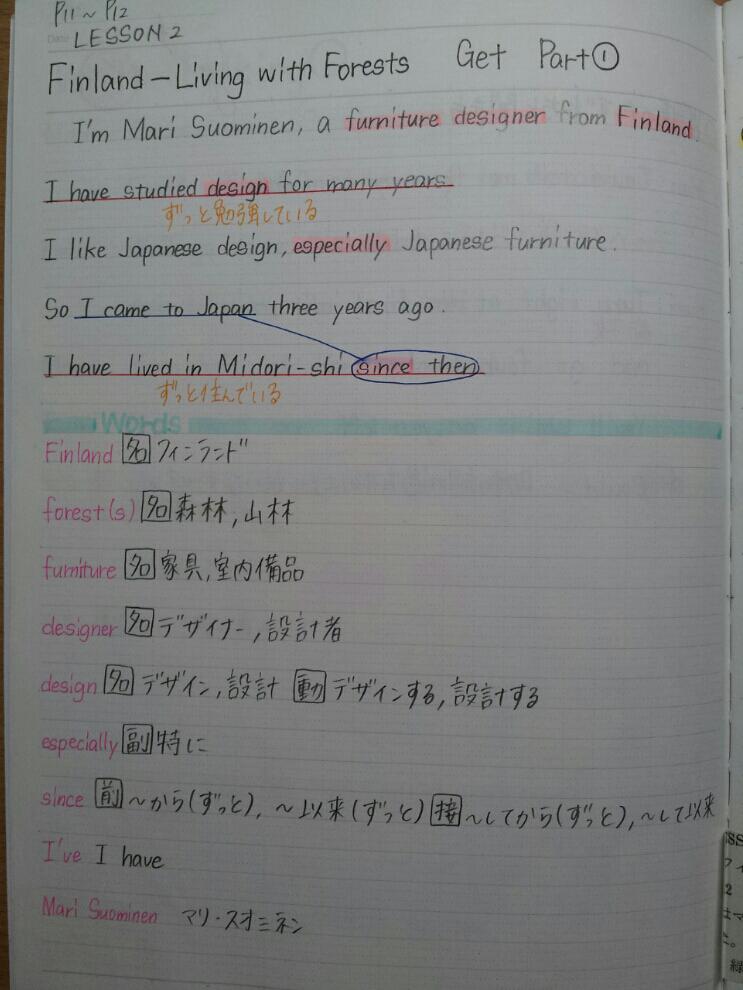 P11~P12
LESSON 2
Finland－Living with Forests Get Part①
I'm Mari Suominen, a furniture designer from Finland.
I have studied design for many years.
ずっと勉強している
I like Japanese design, especially Japanese furniture.
So I came to Japan three years ago.
I have lived in Midori-shi since then
ずっと住んでいる
Words
Finland 名 フィンランド
forest(s) 名 森林, 山林
furniture 名 家具, 室内備品
designer 名 デザイナー, 設計者
design 名 デザイン, 設計 動 デザインする, 設計する
especially 副 特に
since 前 ～から(ずっと), ～以来(ずっと) 接 ～してから(ずっと), ～して以来
I've I have
Mari Suominen マリ・スオミネン